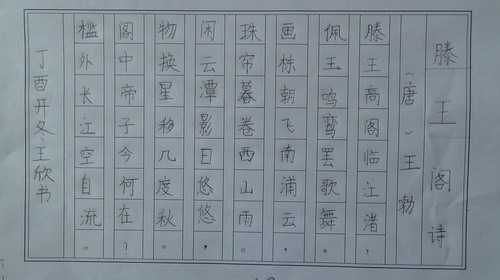 滕王阁诗
（唐）王勃
滕王高阁临江渚，
佩玉鸣鸾罢歌舞。
画栋朝飞南浦云，
珠帘暮卷西山雨。
闲云潭影日悠悠，
物换星移几度秋。
阁中帝子今何在？
槛外长江空自流。
丁酉开冬王欣书